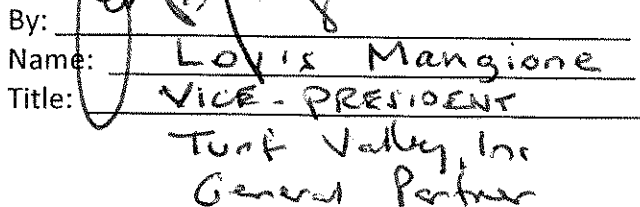 By:
Name: Louis Mangione
Title: VICE-PRESIDENT
Turf Valley, Inc
General Partner